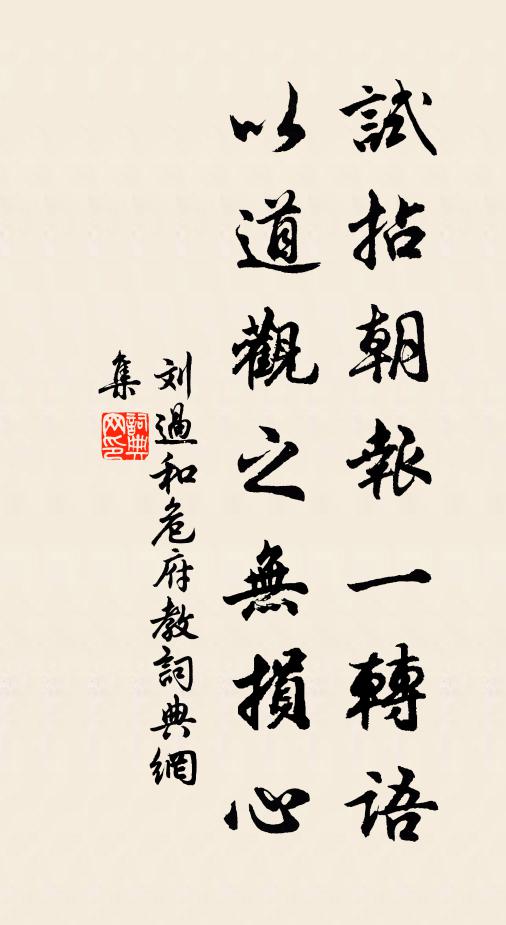 試拈朝報一轉語
以道觀之無損心
刘過和危府教詞典網
集
詞典网印